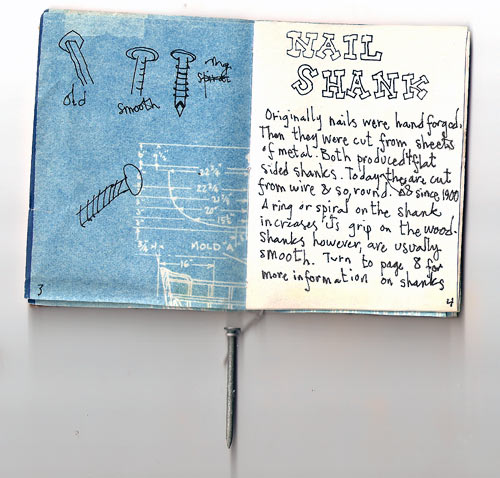 old
smooth
The
22¾"
22¼"
21¾"
20"
15½"
MOLD "A"
16"
3
NAIL
SHANK
Originally nails were hand forged.
Then they were cut from sheets
of metal. Both produced flat
sided shanks. Today they are cut
from wire & so, round. As since 1900
A ring or spiral on the shank
increases it's grip on the wood.
Shanks however, are usually
smooth. Turn to page 8 for
more information on shanks
4